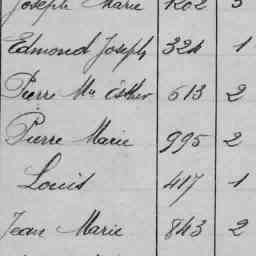 Joseph Marie 1202 3
Edmond Joseph 324 1
Pierre Mie 613 2
Pierre Marie 995 2
Louis 417 1
Jean Marie 843 2